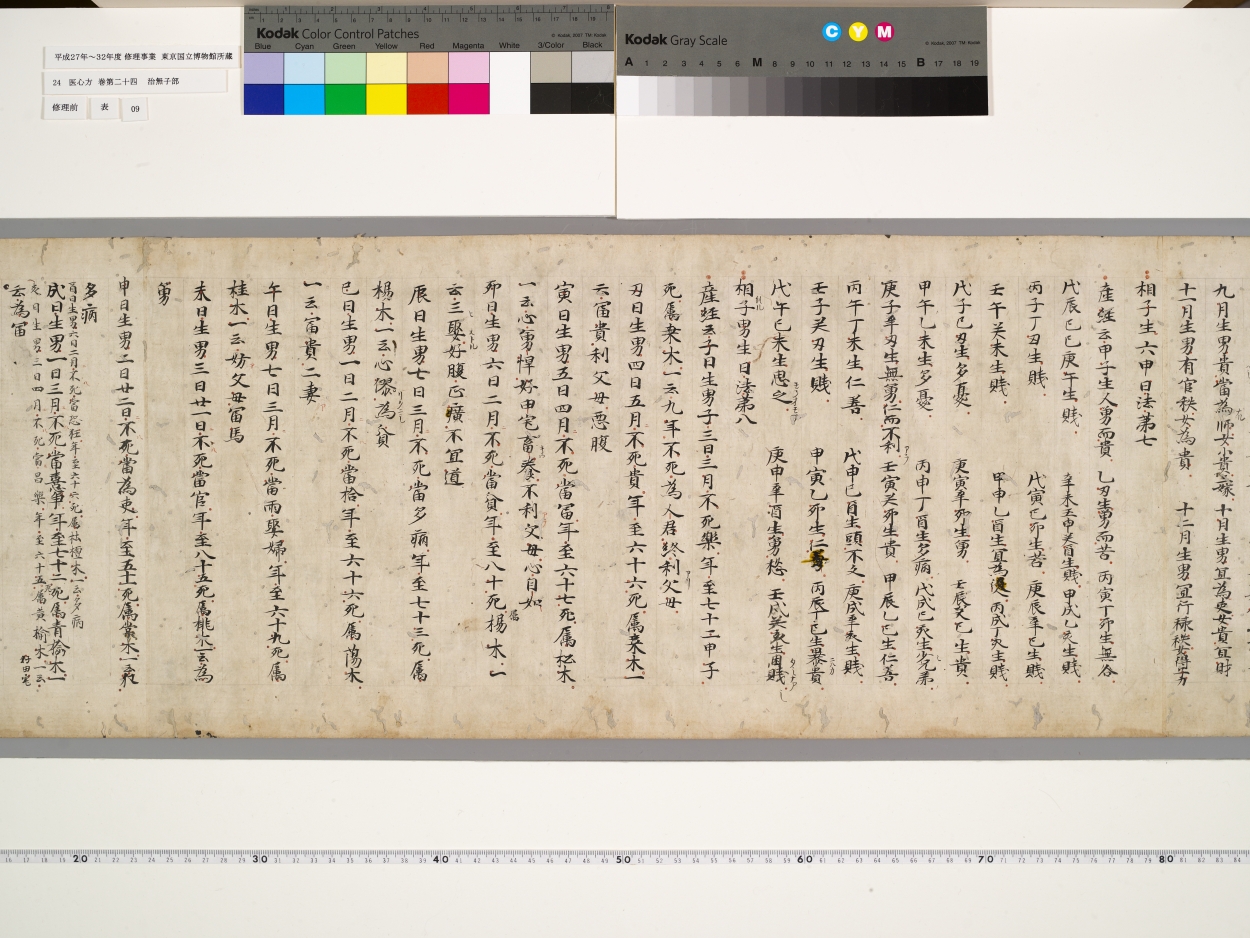 平成27年～32年度 修理事業 東京国立博物館所蔵
24 医心方 巻第二十四 治無子部
修理前 表 09
Kodak Color Control Patches
© Kodak, 2007 TM: Kodak
Blue Cyan Green Yellow Red Magenta White 3/Color Black
Kodak Gray Scale
C Y M
© Kodak, 2007 TM: Kodak
A 1 2 3 4 5 6 M 8 9 10 11 12 13 14 15 B 17 18 19
九月生男貴當為師女小貴 十月生男冝為吏女貴冝時
十一月生男有官秩女為貴 十二月生男冝行禄
相子生六甲日法第七
産經云甲子生人勇而貴 乙丑生男而苦 丙寅丁卯生無咎
戊辰己巳庚午生賤 辛未壬申癸酉生賤 甲戌乙亥生賤
丙子丁丑生賤 戊寅己卯生苦 庚辰辛巳生賤
壬午癸未生賤 甲申乙酉生冝為 丙戌丁亥生賤
戊子己丑生多憂 庚寅辛卯生勇 壬辰癸巳生貴
甲午乙未生多憂 丙申丁酉生多病 戊戌己亥生少兄弟
庚子辛丑生無勇仁而不利 壬寅癸卯生貴 甲辰乙巳生仁善
丙午丁未生仁善 戊申己酉生頭不 庚戌辛亥生賤
壬子癸丑生賤 甲寅乙卯生仁 丙辰丁巳生暴貴
戊午己未生思之 庚申辛酉生勇 壬戌癸亥生困賤
相子男生日法第八
産經云子日生男子三日三月不死樂年至七十二甲子
死属来木一云九年不死為人君終利父母
丑日生男四日五月不死貴年至六十六死属来木一
云富貴利父母悪腹
寅日生男五日四月不死當富年至六十七死属松木
一云心勇悍好田宅畜養不利父母心自如
卯日生男六日二月不死當貧年至八十死属楊木一
云三娶好腹正 不冝道
辰日生男七日三月不死當多病年至七十三死属
楊木一云心 為貧
巳日生男一日二月不死當 年至六十六死属 木
一云富貴二妻
午日生男七日三月不死當両娶婦年至六十九死属
桂木一云妨父母富馬
未日生男三日廿一日不死當官年至八十五死属桃木一云為
男
申日生男二日廿二日不死當為吏年至五十一死属 木一云
多病
酉日生男六日二月不死當 年至六十六死属 木一云多病
戌日生男一日三月不死當 年至七十二死属青榆木一
亥日生男三日四月不死當昌樂年至六十五属黄榆木一云
云為富
好田宅
20 30 40 50 60 70 80